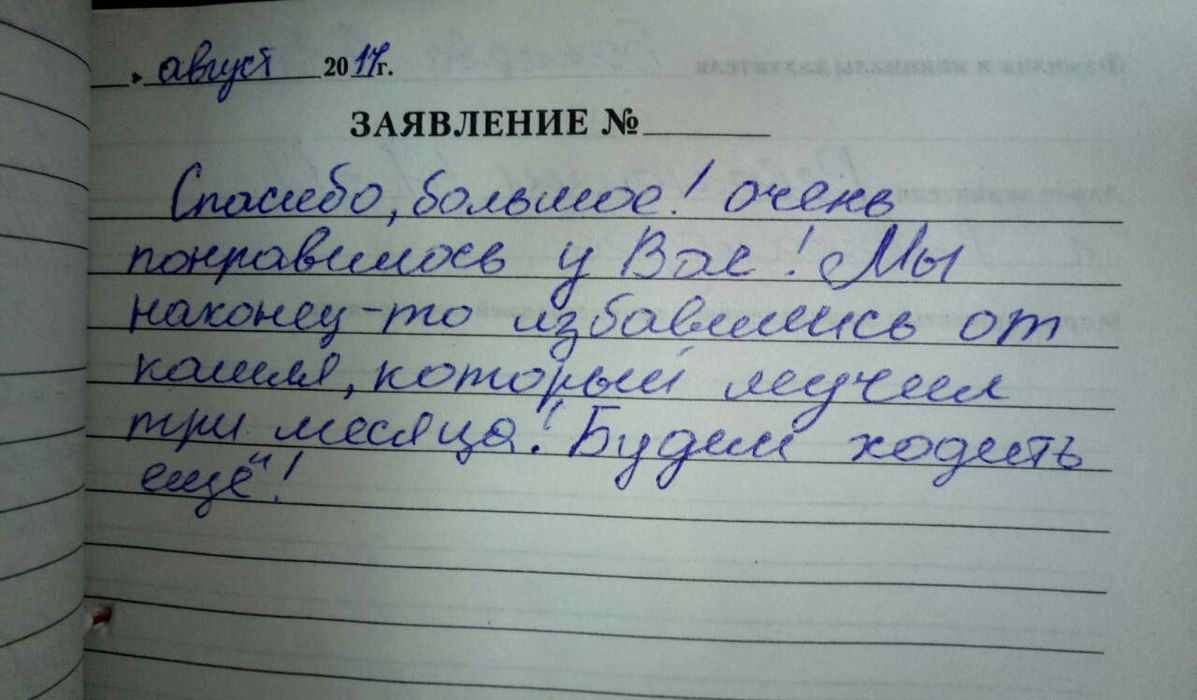 » август 2017г.
ЗАЯВЛЕНИЕ №
Спасибо, большое! очень
понравилось у Вас! Мы
наконец-то избавились от
кашля, который мучил
три месяца! Будем ходить
ещё!